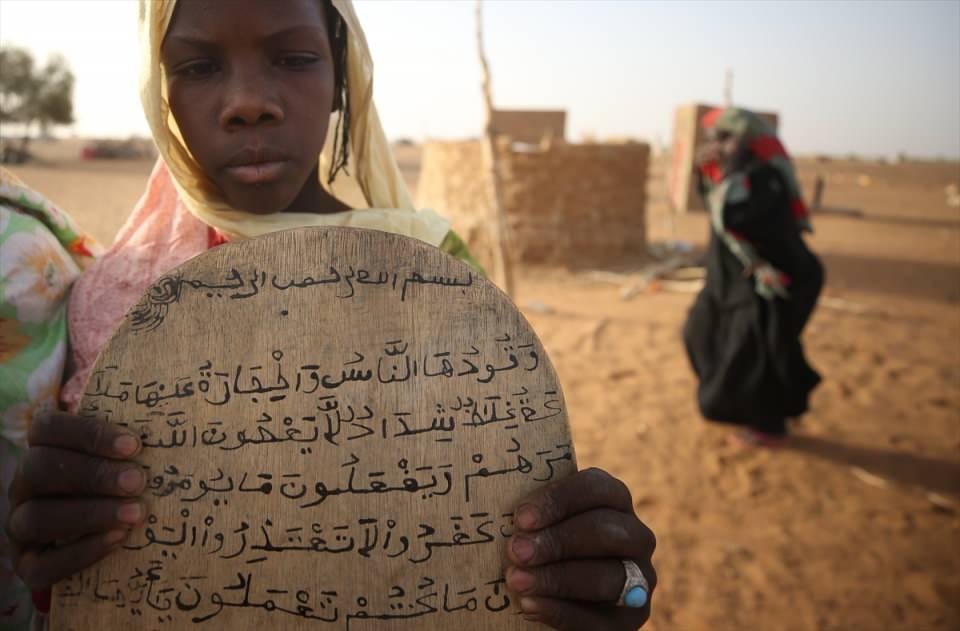 بسم الله الرحمن الرحيم
وَقُودُهَا النَّاسُ وَالْحِجَارَةُ عَلَيْهَا مَلَ
كَةٌ غِلَاظٌ شِدَادٌ لَّا يَعْصُونَ اللَّهَ
مَرَهُمْ وَيَفْعَلُونَ مَا يُومَرُو
نَ كَفَرُواْ لَا تَعْتَذِرُواْ الْيَوْ
نَ مَا كُنتُمْ تَعْمَلُونَ يَأَيُّهَا الذ